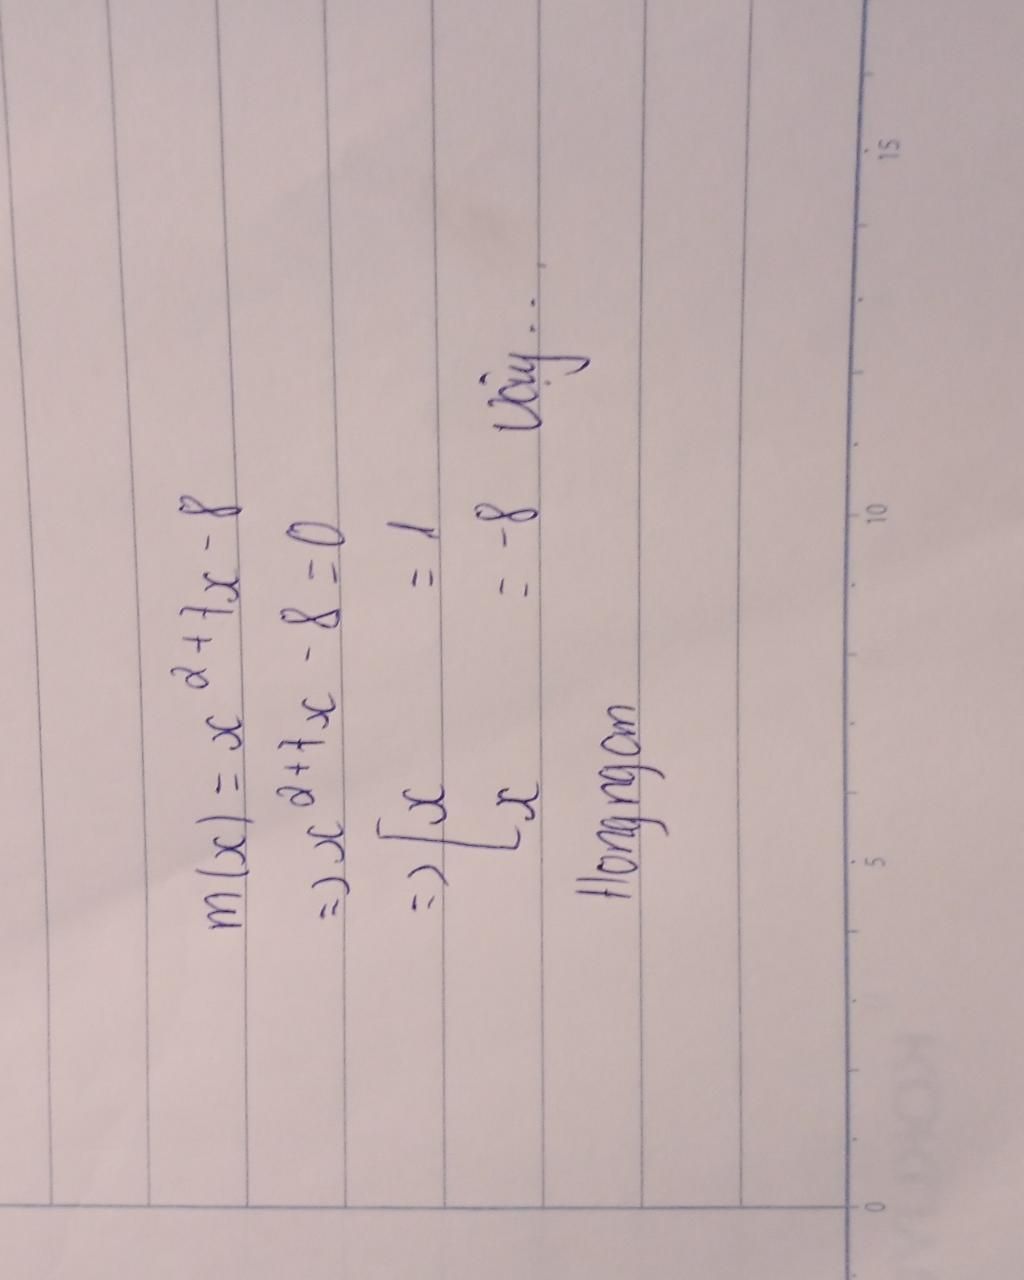 m(x) = x² + 7x - 8
=) x² + 7x - 8 = 0
=) [x = 1
[x = -8 Vậy...
Hongngam
0 5 10 15